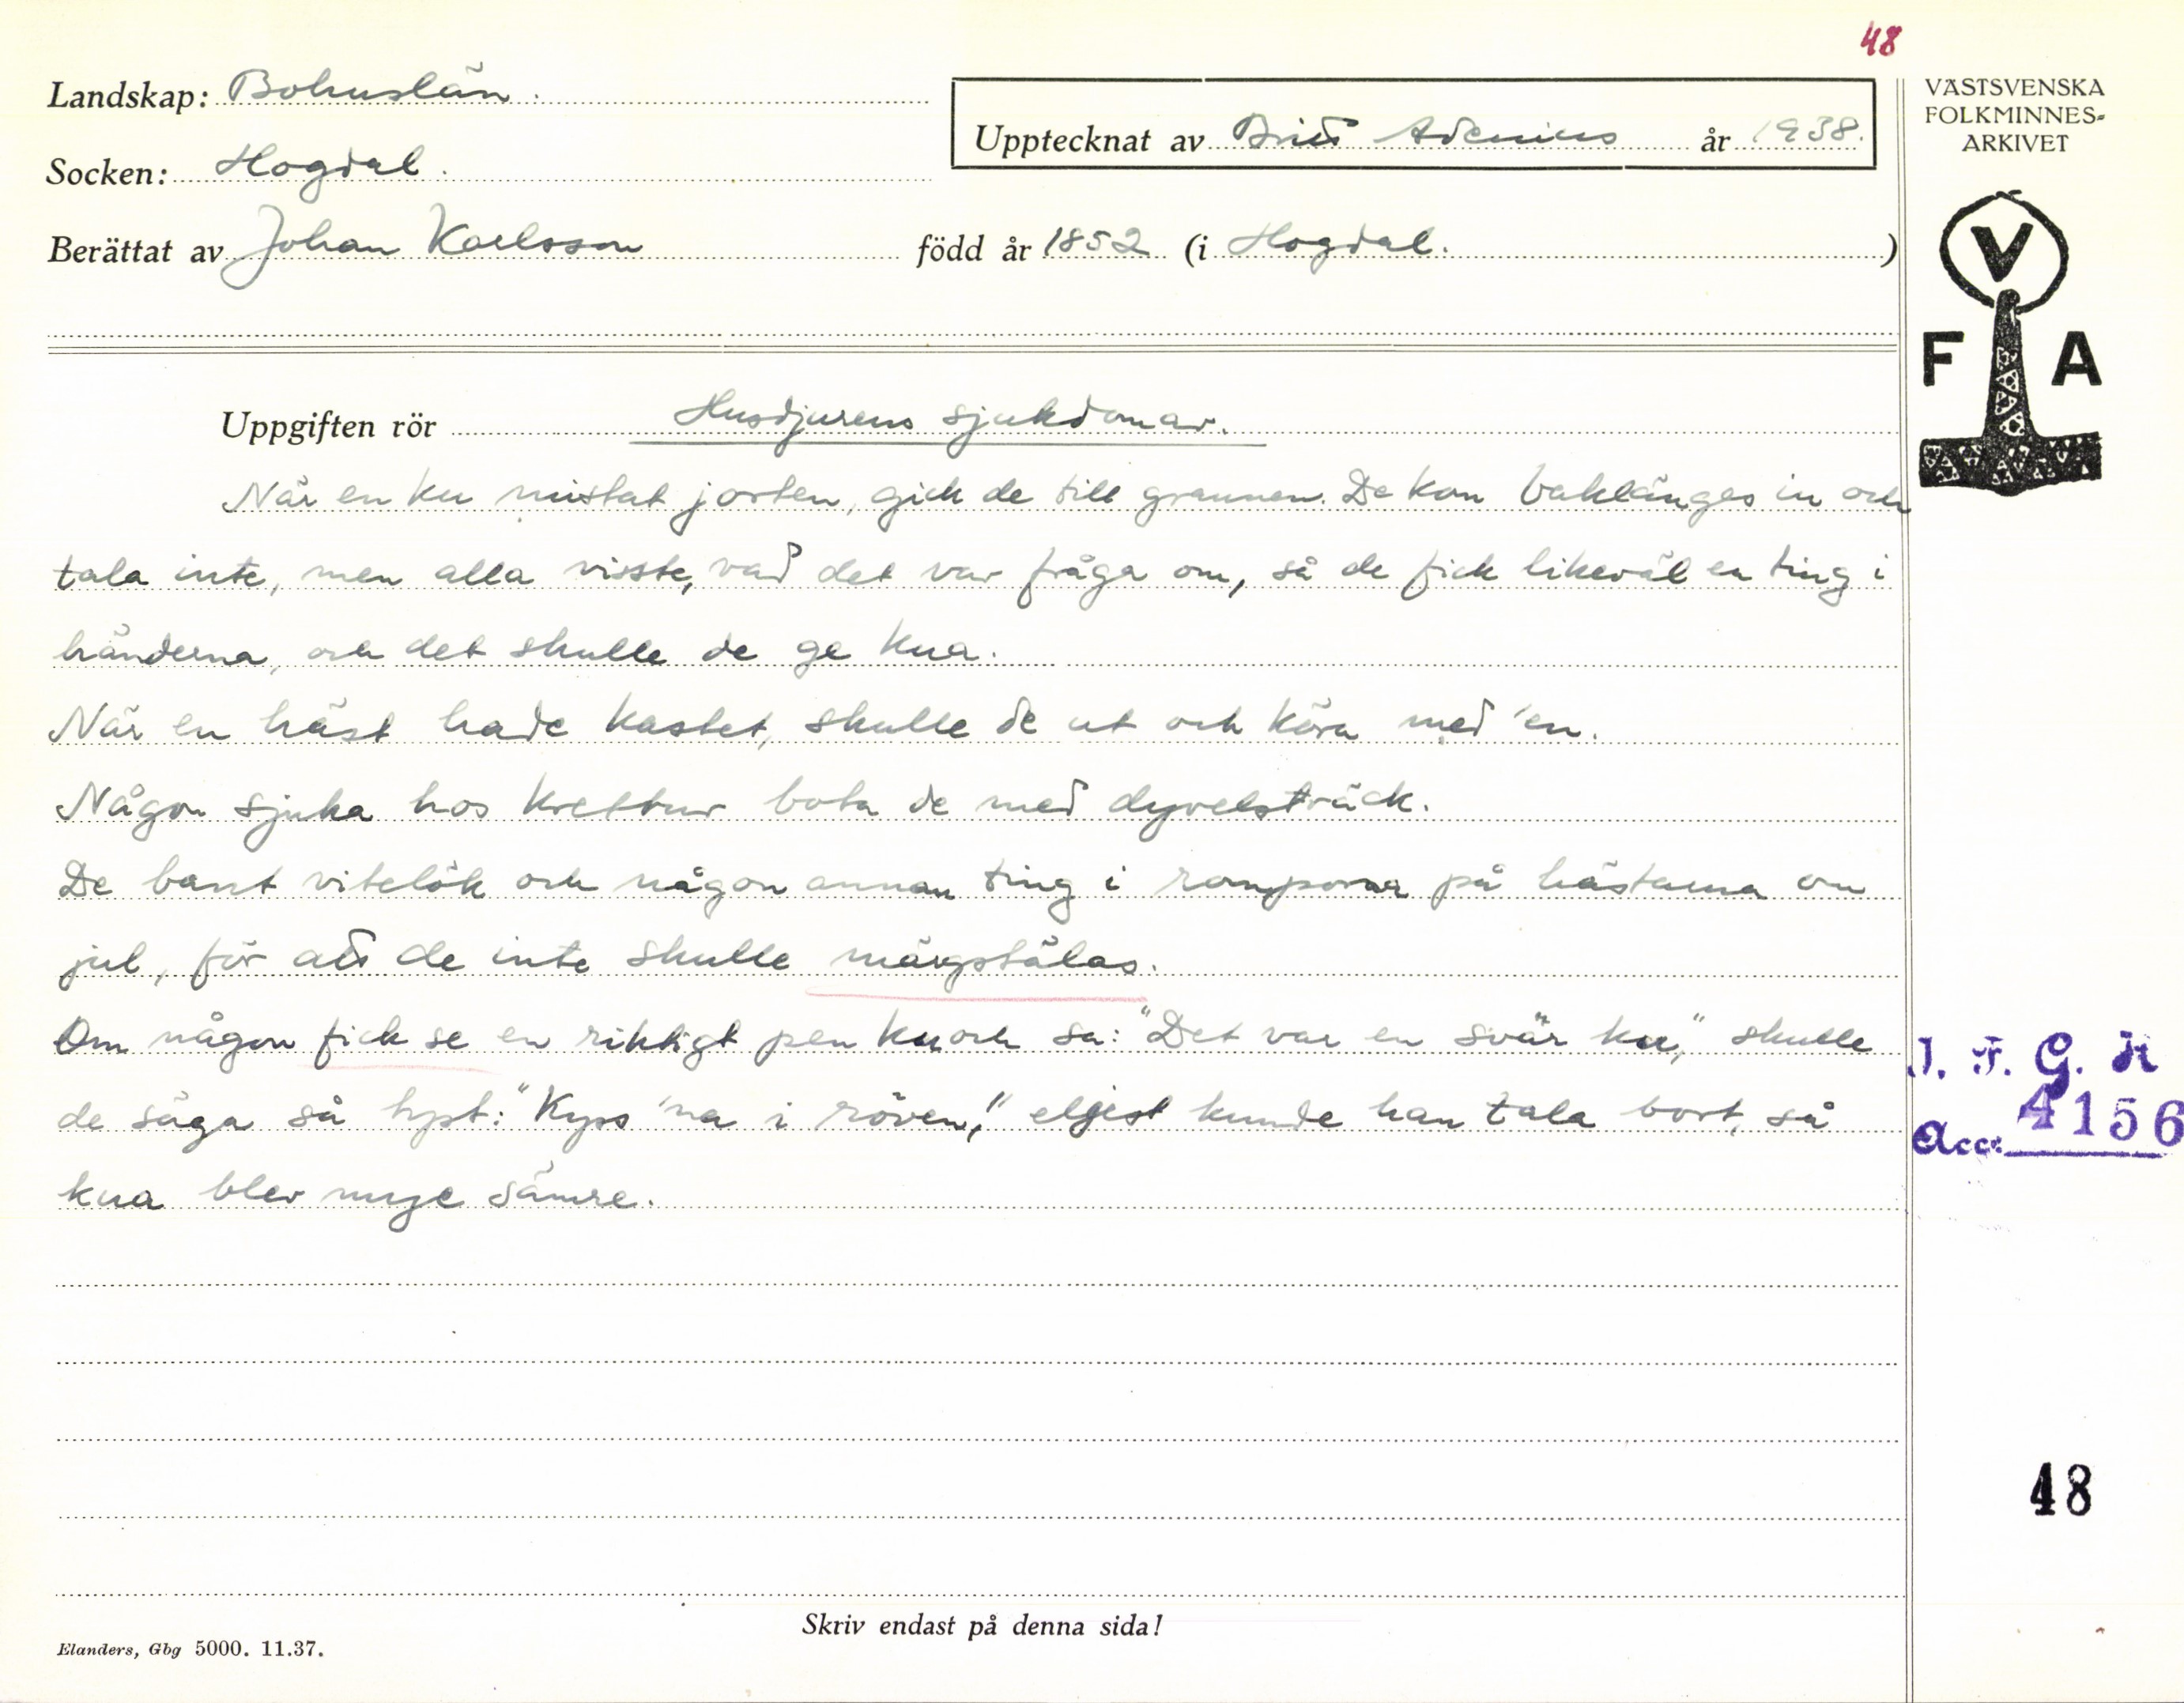 48
Landskap: Bohuslän.
Upptecknat av Britt Adenius år 1938.
Socken: Hogdal.
Berättat av Johan Karlsson född år 1852 (i Hogdal.)
VÄSTSVENSKA
FOLKMINNES-
ARKIVET
V
F A
Uppgiften rör Husdjurens sjukdomar.
När en ku mistat jorten, gick de till grannen. De kom baklänges in och
tala inte, men alla visste, vad det var fråga om, så de fick likeväl en ting i
händerna, och det skulle de ge kua.
När en häst hade kastet, skulle de ut och köra med 'en.
Någon sjuka hos krettur bota de med dyvelsträck.
De bant vitelök och någon annan ting i romporna på hästarna om
jul, för att de inte skulle märgstälas.
Om någon fick se en riktigt pen ku och sa: "Det var en svär ku," skulle
de säga så hyst: "Kyss 'na i röven," eljest kunde han tala bort, så
kua blev mye sämre.
I. F. G. H
Acc: 4156
48
Skriv endast på denna sida!
Elanders, Gbg 5000. 11.37.